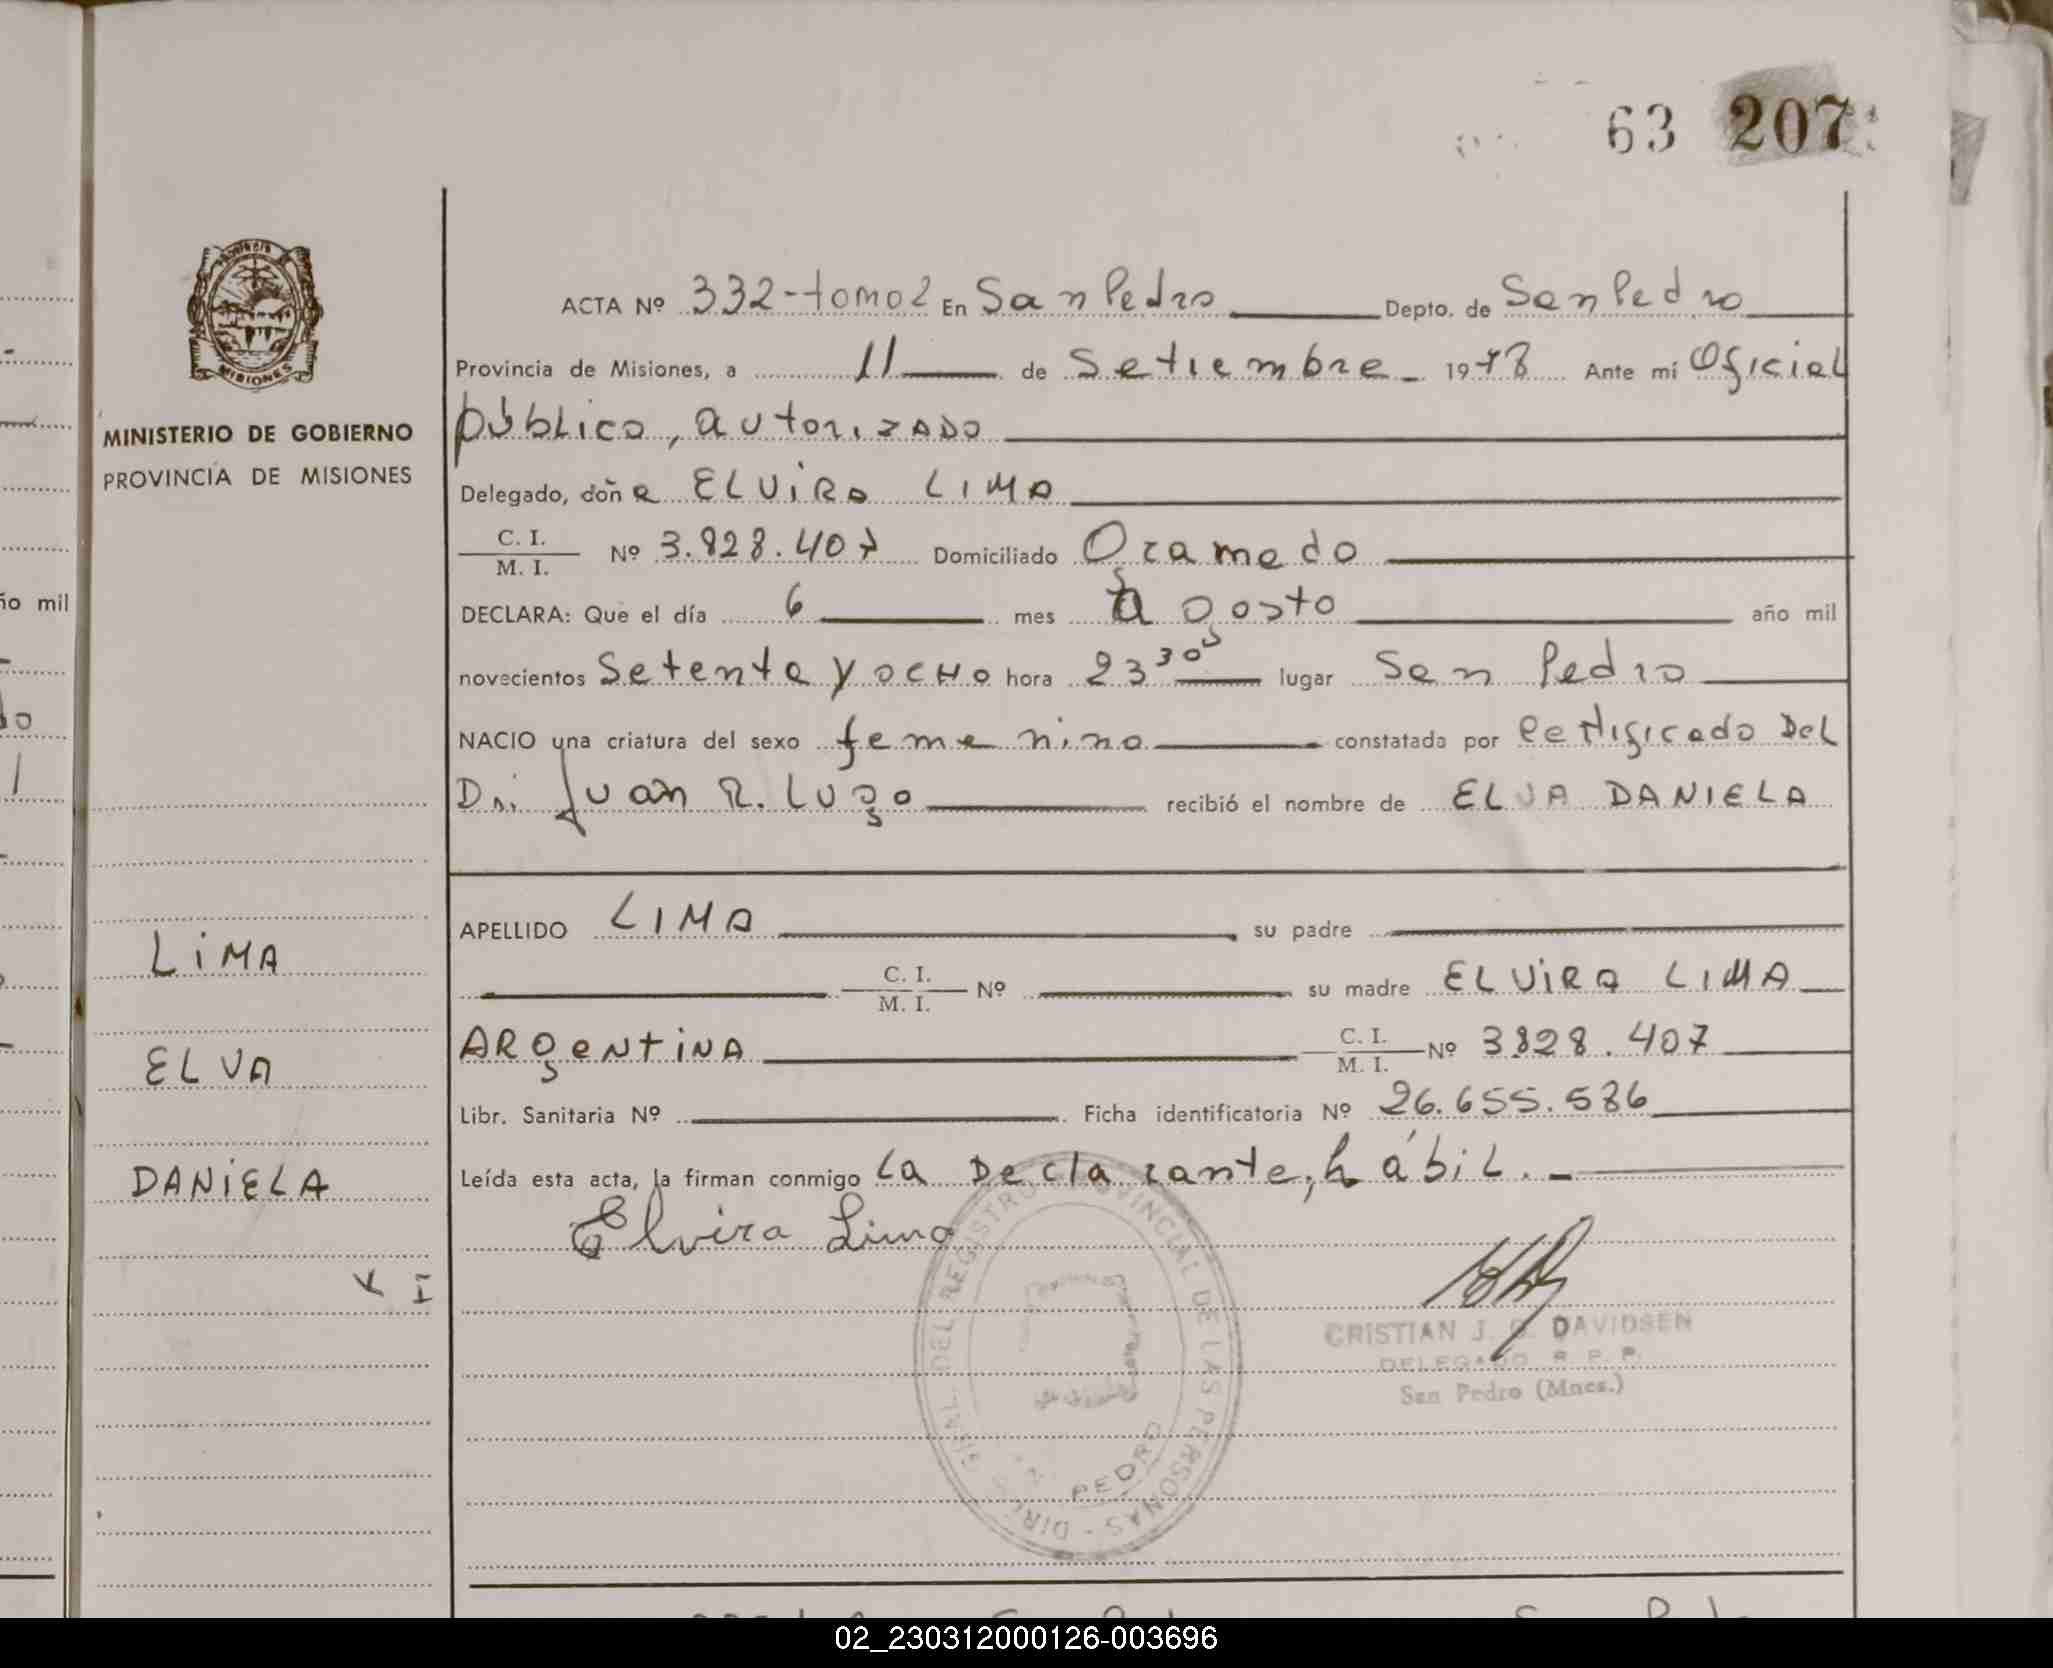 63 207
ACTA Nº 332-tomo2 En San Pedro Depto. de San Pedro
Provincia de Misiones, a 11 de Setiembre 1978 Ante mí Oficial
MINISTERIO DE GOBIERNO
PROVINCIA DE MISIONES
público, autorizado
Delegado, doña ELVIRA LIMA
C. I.
M. I. Nº 3.828.407 Domiciliado Gramado
DECLARA: Que el día 6 mes agosto año mil
novecientos Setenta y ocho hora 23 30s lugar San Pedro
NACIO una criatura del sexo femenino constatada por Certificado Del
Dr. Juan R. Lugo recibió el nombre de ELVA DANIELA
APELLIDO LIMA su padre
C. I.
M. I. Nº su madre ELVIRA LIMA
ARgentiNA C. I.
M. I. Nº 3828.407
Libr. Sanitaria Nº Ficha identificatoria Nº 26.655.586
Leída esta acta, la firman conmigo la Declarante, hábil.-
Elvira Lima
LIMA
ELVA
DANIELA
MISIONES
ño mil
DEL REGISTRO PROVINCIAL DE LAS PERSONAS - DIR.
PEDRO
CRISTIAN J. DAVIDSEN
DELEGADO R. P. P.
San Pedro (Mnes.)
02_230312000126-003696